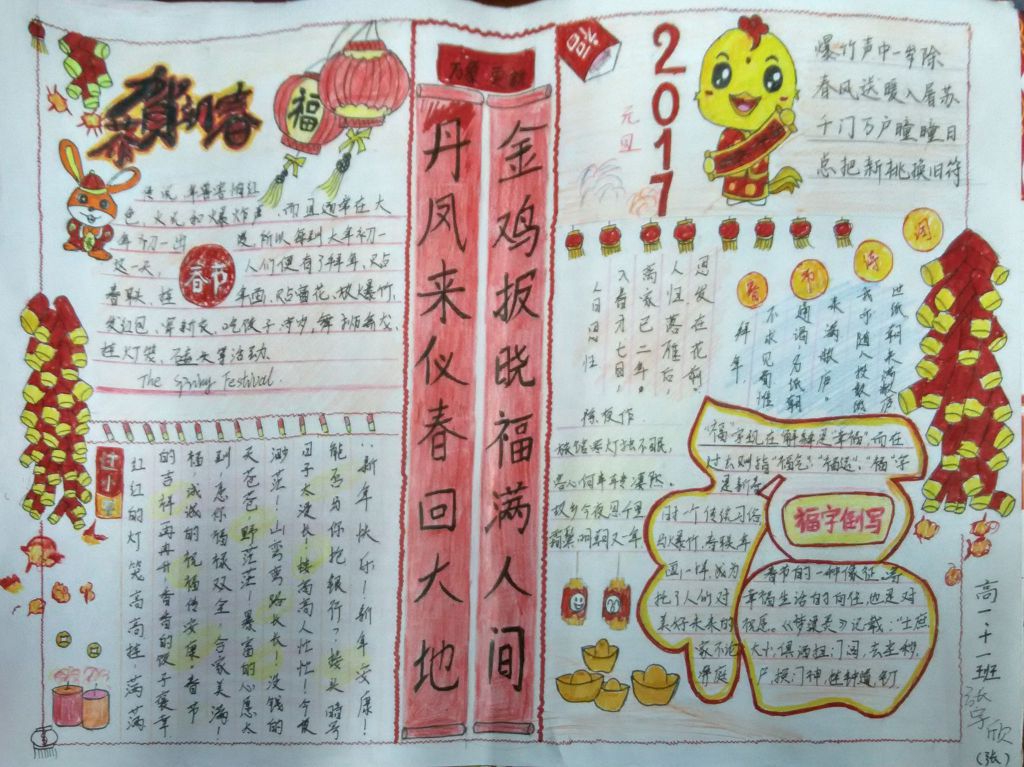 恭贺新春
福
色，火光和爆炸声，而且通常在大
年初一出
度所以每到大年初一
这一天，
人们便有了拜年、贴
春节
春联、挂
年画、贴窗花、放爆竹、
发红包、穿新衣、吃饺子、守岁、舞
挂灯笼、
等活动
The Spring Festival.
过小年
新年快乐！新年安康！
能否为你抱银行？接头暗号
日子太漫长
渺茫！山弯弯，路长长！没钱的
天苍苍，野茫茫！暴富的心愿太
到，愿你福禄双全，合家美满！
福，诚诚的祝福传安康，春节
的吉祥再再升，香香的饺子
红红的灯笼高高挂，满满
万象更新
金鸡报晓福满人间
丹凤来仪春回大地
福
2017
元旦
爆竹声中一岁除
春风送暖入屠苏
千门万户曈曈日
总把新桃换旧符
春节诗词
不求见面惟通谒
名纸朝来满敝庐
我亦随人投数纸
拜年
人日思归
入春才七日，
离家已二年。
人归落雁后，
思发在花前。
旅馆寒灯独不眠，
客心何事转凄然。
故乡今夜思千里
霜鬓明朝又一年
"福"字现在解释是"幸福"，而在
过去则指"福气"、"福运"。"福"字
是新春
福字倒写
的一个传统习俗
与爆竹、春联、年
画一样，成为
春节的一种象征，寄
托了人们对
幸福生活的向往，也是对
美好未来的
祝愿。《梦粱录》记载："士庶
家不论
大小，俱洒扫门闾，去尘秽，
净庭
户，换门神，挂钟馗，钉
高一·十一班
(张)